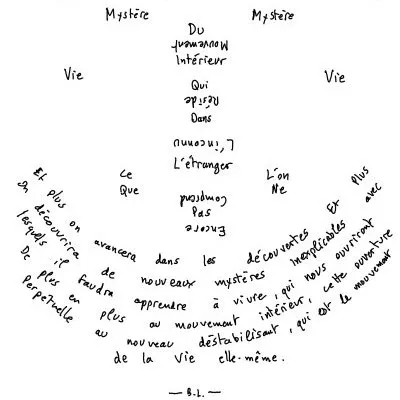 Mystère Mystère
Du
Mouvement
Intérieur
Vie Vie
Qui
Réside
Dans
L'inconnu
L'étranger
Ce L'on
Que Ne
Comprend
Pas
Encore
Et plus on avancera dans les découvertes Et Plus
On découvrira de nouveaux mystères inexplicables avec
lesquels il faudra apprendre à vivre, qui nous ouvriront
De plus en plus au mouvement intérieur, cette ouverture
Perpetuelle au nouveau déstabilisant, qui est le mouvement
de la vie elle-même.
— B.L. —